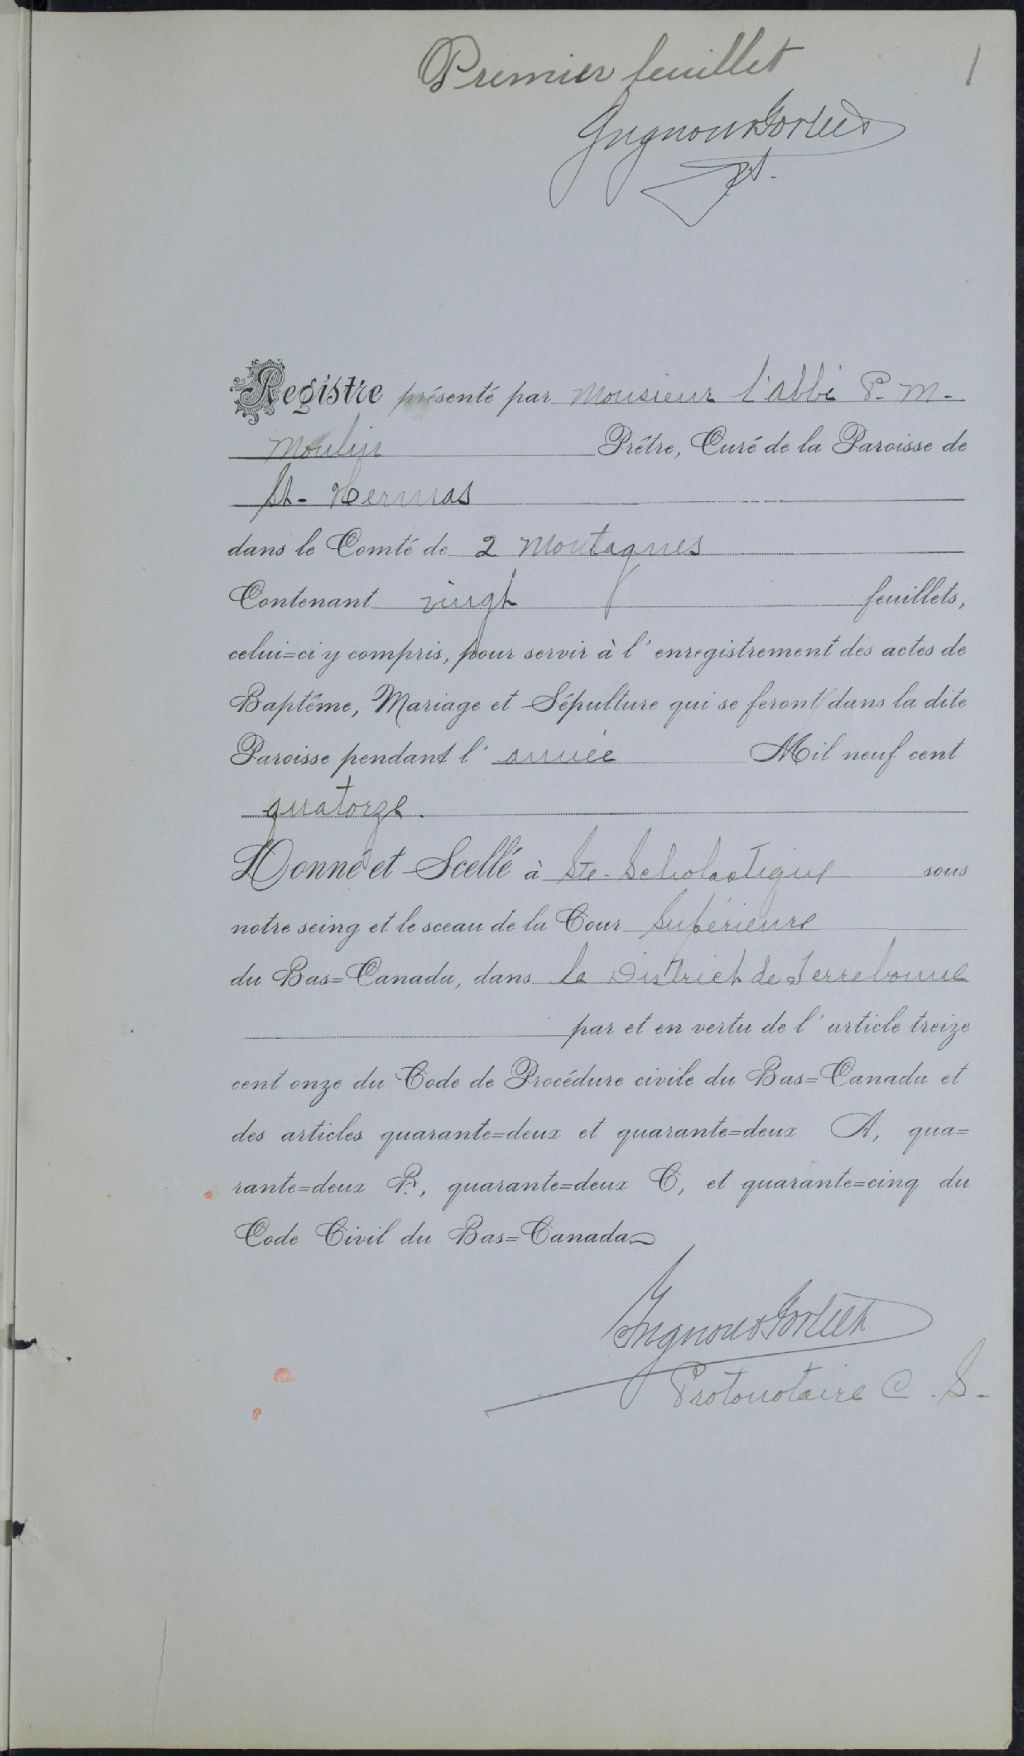 Premier feuillet 1
Registre présenté par Monsieur l'abbé P. M.
Moulin Prêtre, Curé de la Paroisse de
St-Hermas
dans le Comté de 2 Montagnes
Contenant vingt feuillets,
celui=ci y compris, pour servir à l'enregistrement des actes de
Baptême, Mariage et Sépulture qui se feront dans la dite
Paroisse pendant l'année Mil neuf cent
quatorze.
Donné et Scellé à Ste-Scholastique sous
notre seing et le sceau de la Cour Supérieure
du Bas=Canada, dans le District de Terrebonne
par et en vertu de l'article treize
cent onze du Code de Procédure civile du Bas=Canada et
des articles quarante=deux et quarante=deux A, qua=
rante=deux B, quarante=deux C, et quarante=cinq du
Code Civil du Bas=Canada
Protonotaire C. S.